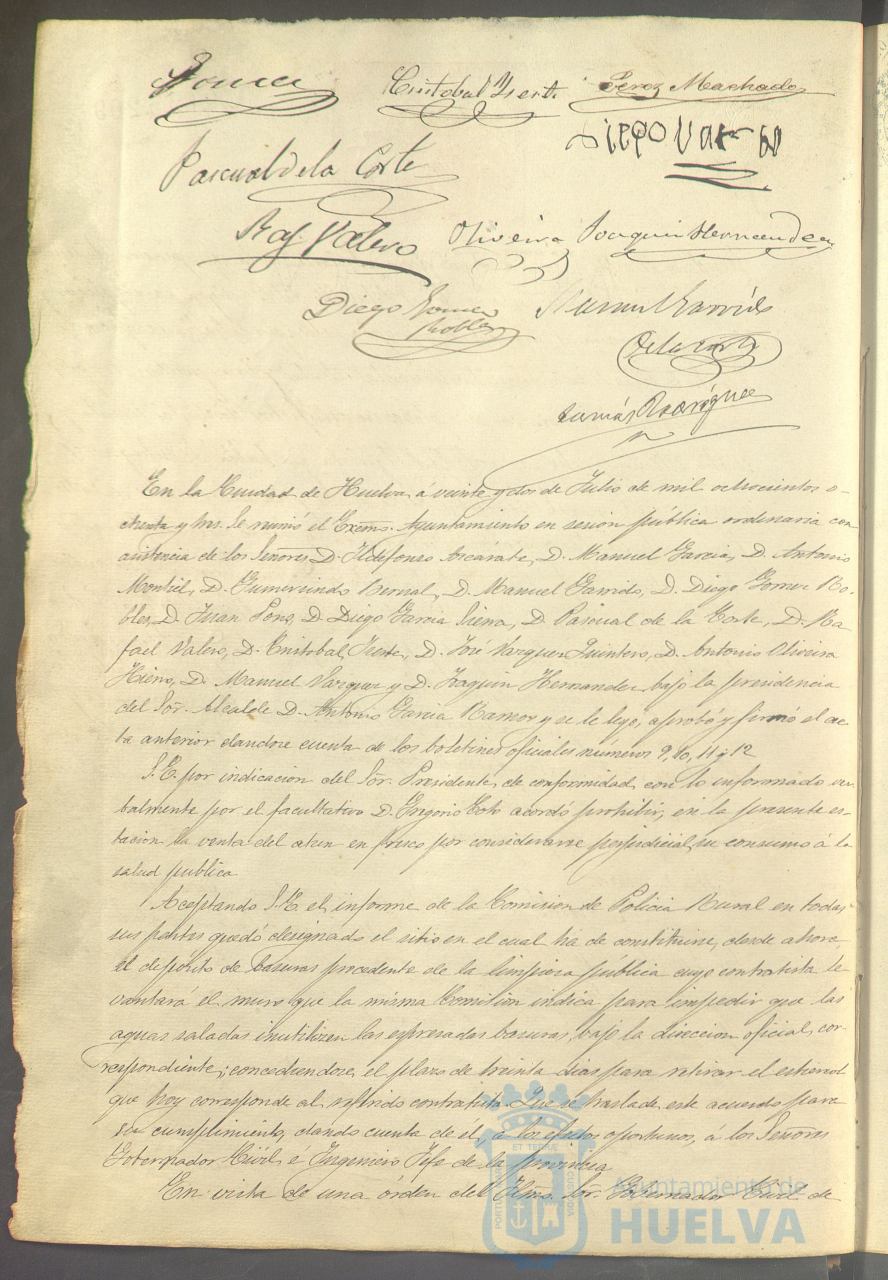 Gomez
Cristobal Yuste Perez Machado
Diego Vazquez
Pascual de la Corte
Raf Valero Oliveira Joaquin Hernandez
Diego Gomez
Robles
Manuel Garrido
de la Corte
Tomás Rodríguez
En la Ciudad de Huelva, á veinte y dos de Julio de mil ochocientos o-
chenta y tres Se reunió el Excmo. Ayuntamiento en sesión pública ordinaria con
asistencia de los Señores D. Ildefonso Azcárate, D. Manuel Garcia, D. Antonio
Montiel, D. Gumersindo Bernal, D. Manuel Garrido, D. Diego Gomez Ro-
bles, D. Juan Pons, D. Diego Garcia Sierra, D. Pascual de la Corte, D. Ra
fael Valero, D. Cristobal Yuste, D. José Vazquez Quintero, D. Antonio Oliveira
Hiero, D. Manuel Vazquez y D. Joaquin Hernandez bajo la presidencia
del Sor. Alcalde D. Antonio Garcia Ramos y se le leyó, aprobó y firmó el ac
ta anterior dandose cuenta de los boletines oficiales números 9, 10, 11 y 12
S. E. por indicacion del Sor. Presidente, de conformidad con lo informado ver
balmente por el facultativo D. Gregorio Coto acordó prohibir, en la presente es-
tacion la venta del atun en fresco por considerarse perjudicial su consumo á la
salud publica
Aceptando S. E. el informe de la Comision de Policia Rural en todas
sus partes quedó designado el sitio en el cual ha de constituirse, desde ahora
el deposito de basuras procedente de la limpieza pública cuyo contratista le
vantará el muro que la misma Comision indica para impedir que las
aguas saladas inutilizen las espresadas basuras, bajo la direccion oficial, cor-
respondiente; concediendose el plazo de treinta dias para retirar el estiercol
que hoy corresponde al referido contratista. Que se traslade este acuerdo para
su cumplimiento, dando cuenta de él, á los efectos oportunos, á los Señores
Gobernador Civil e Ingeniero Jefe de la provincia
En vista de una órden del Iltmo. Sor. Gobernador Civil de
Ayuntamiento de
HUELVA